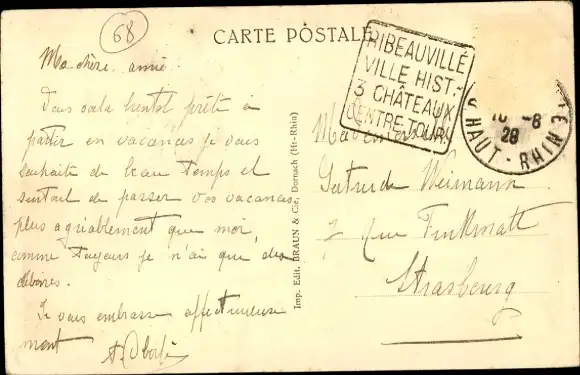 68
CARTE POSTALE
RIBEAUVILLÉ
VILLE HIST.-
3 CHÂTEAUX
CENTRE TOUR.
10 -8
28
HAUT-RHIN
Ma chère amie
Vous voila bientot prête à
partir en vacances je vous
souhaite de beau temps et
surtout de passer vos vacances
plus agréablement que moi,
comme toujours je n'ai que des
déboires.
Je vous embrasse affectueuse
ment
Imp. Edit. BRAUN & Cie, Dornach (Ht-Rhin)
Gertrude Weimann
2 Rue Finkmatt
Strasbourg